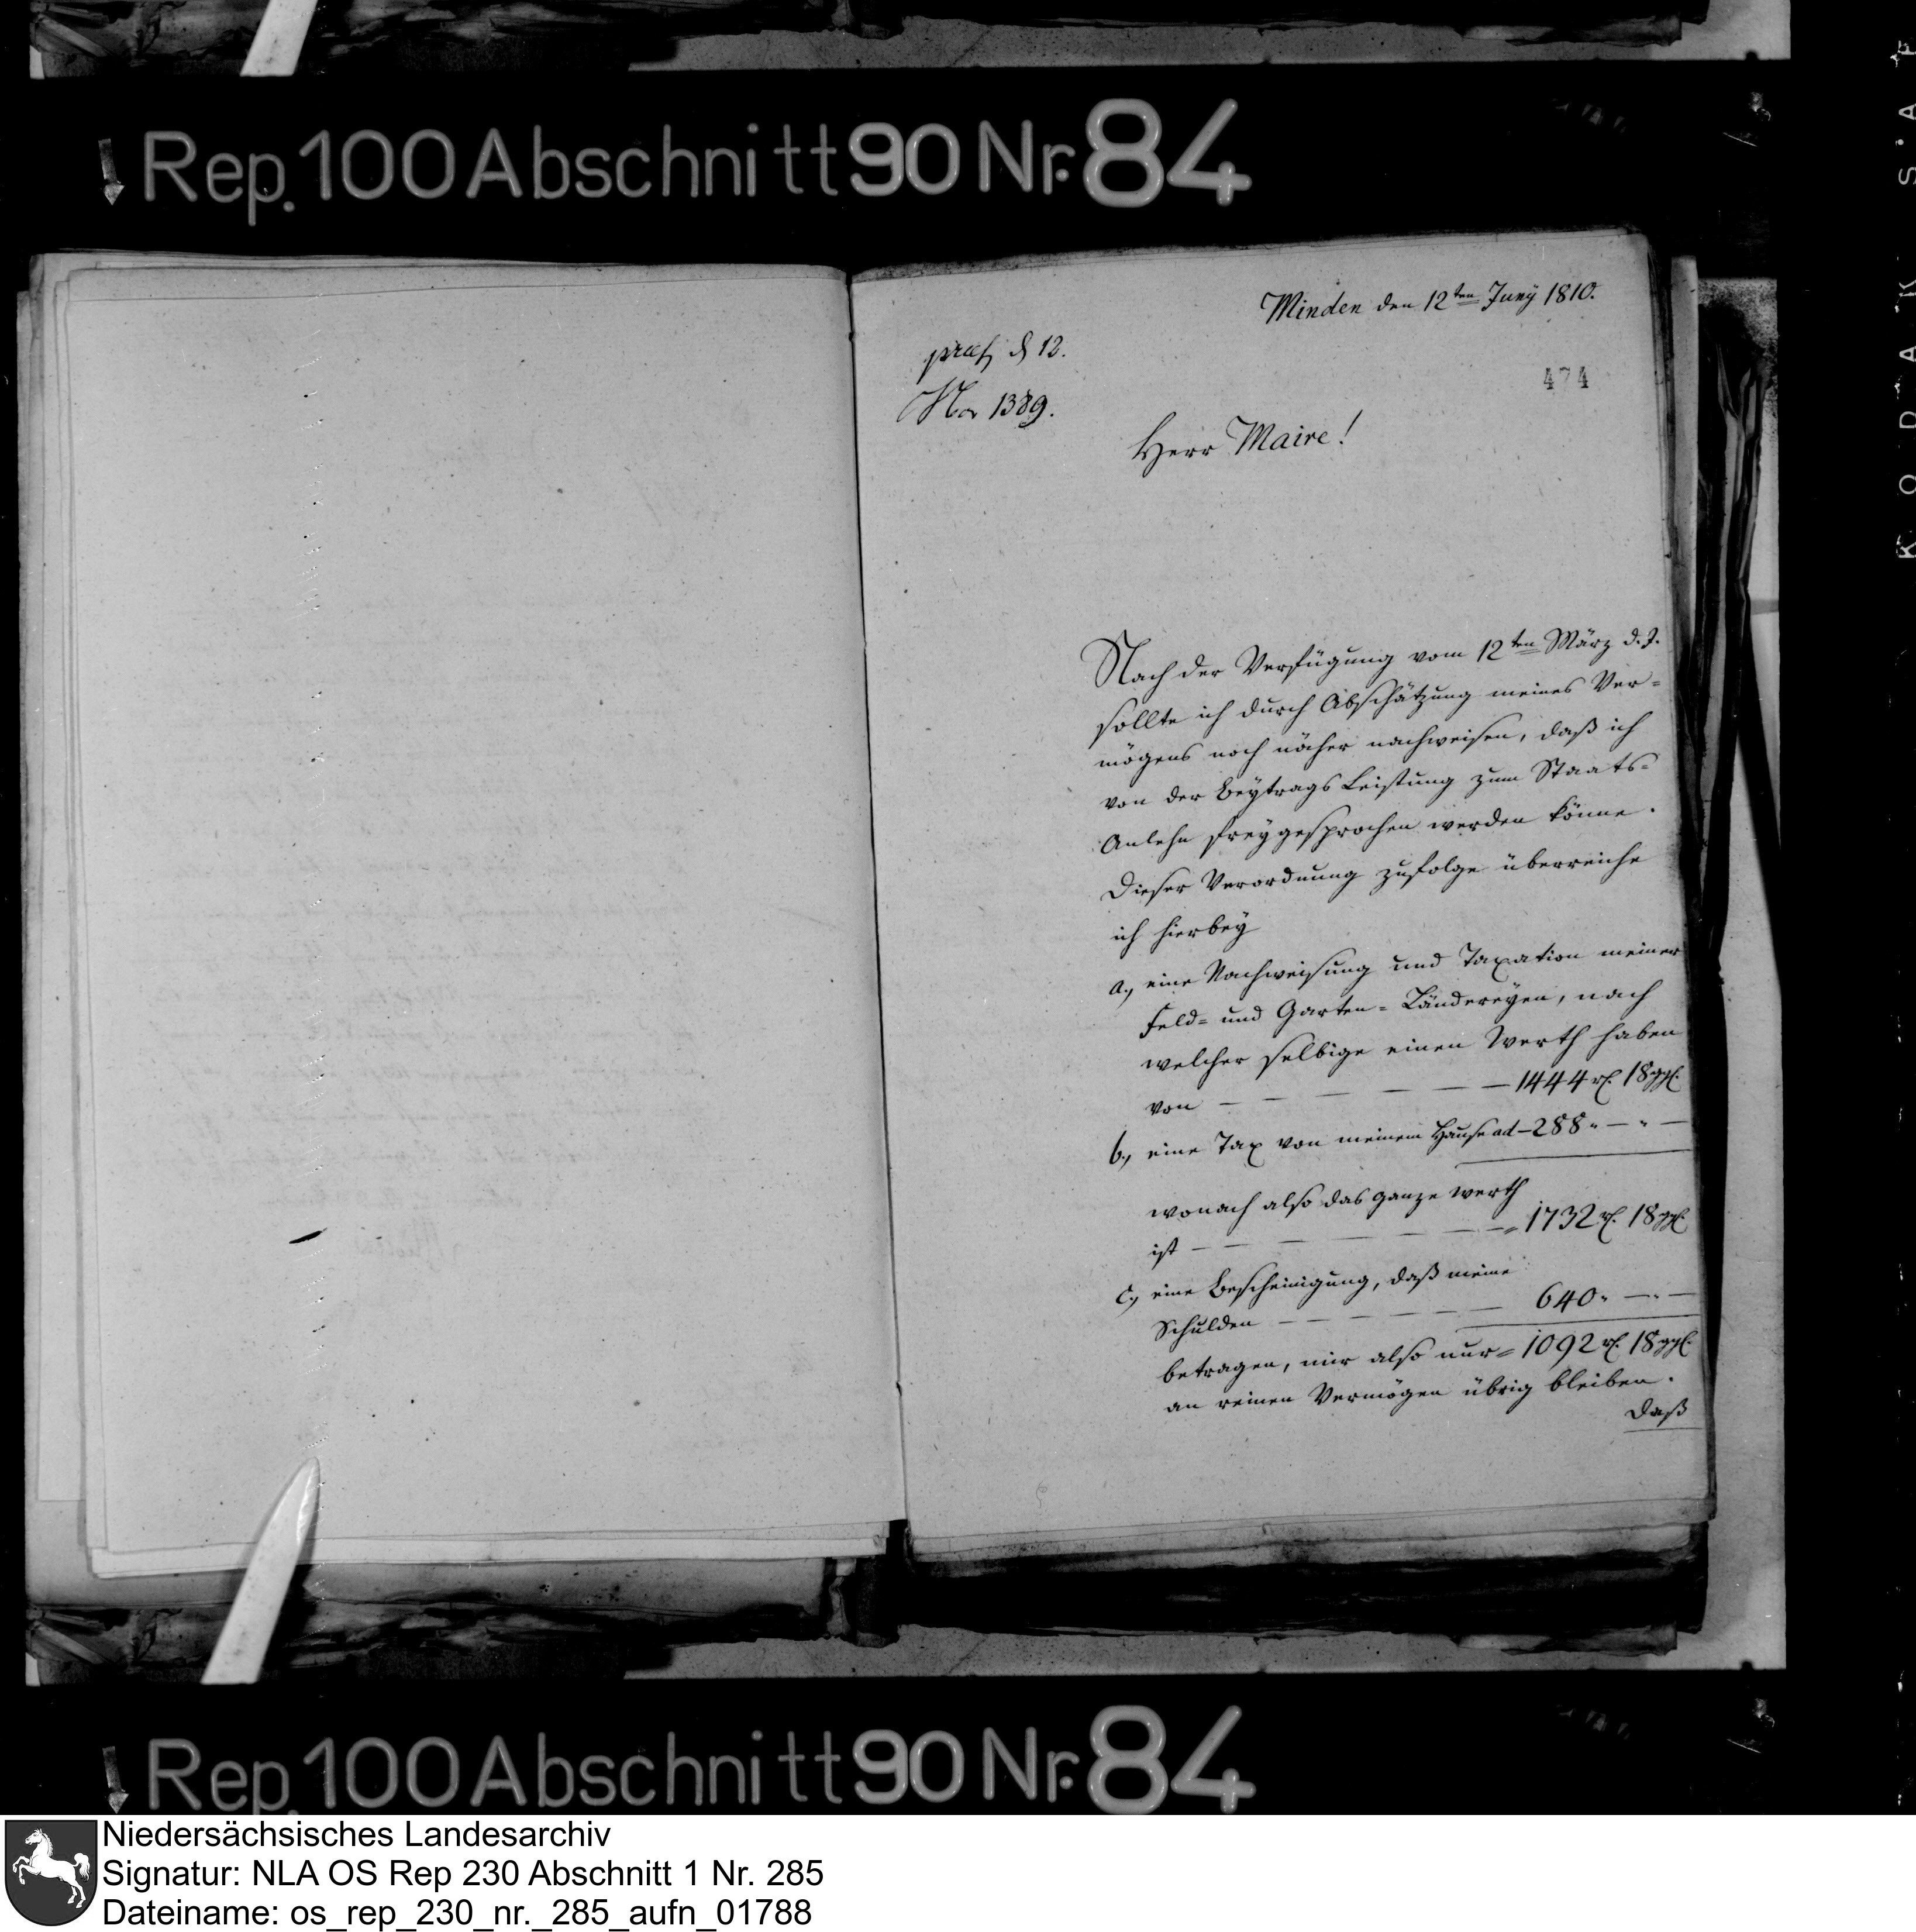 Rep. 100 Abschnitt 90 Nr. 84
Minden den 12ten Juny 1810.
praes d 12.
No 1389.
474
Herr Maire!
Nach der Verfügung vom 12ten März d. J.
sollte ich durch Abschätzung meines Ver-
mögens noch näher nachweisen, daß ich
von der Beytrags Leistung zum Staats-
Anlehn freygesprochen werden könne.
Dieser Verordnung zufolge überreiche
ich hierbey
a., eine Nachweisung und Taxation meiner
Feld- und Garten-Ländereyen, nach
welcher selbige einen Werth haben
von — — — — 1444 rl. 18 ggl.
b., eine Tax von meinem Hause ad — 288 " — " —
wonach also das ganze werth
ist — — — — — 1732 rl. 18 ggl.
c., eine Bescheinigung, daß meine
Schulden — — — — — 640 " — " —
betragen, mir also nur = 1092 rl. 18 ggl.
an reinen Vermögen übrig bleiben.
Daß
Rep. 100 Abschnitt 90 Nr. 84
KODAK SAF
Niedersächsisches Landesarchiv
Signatur: NLA OS Rep 230 Abschnitt 1 Nr. 285
Dateiname: os_rep_230_nr._285_aufn_01788